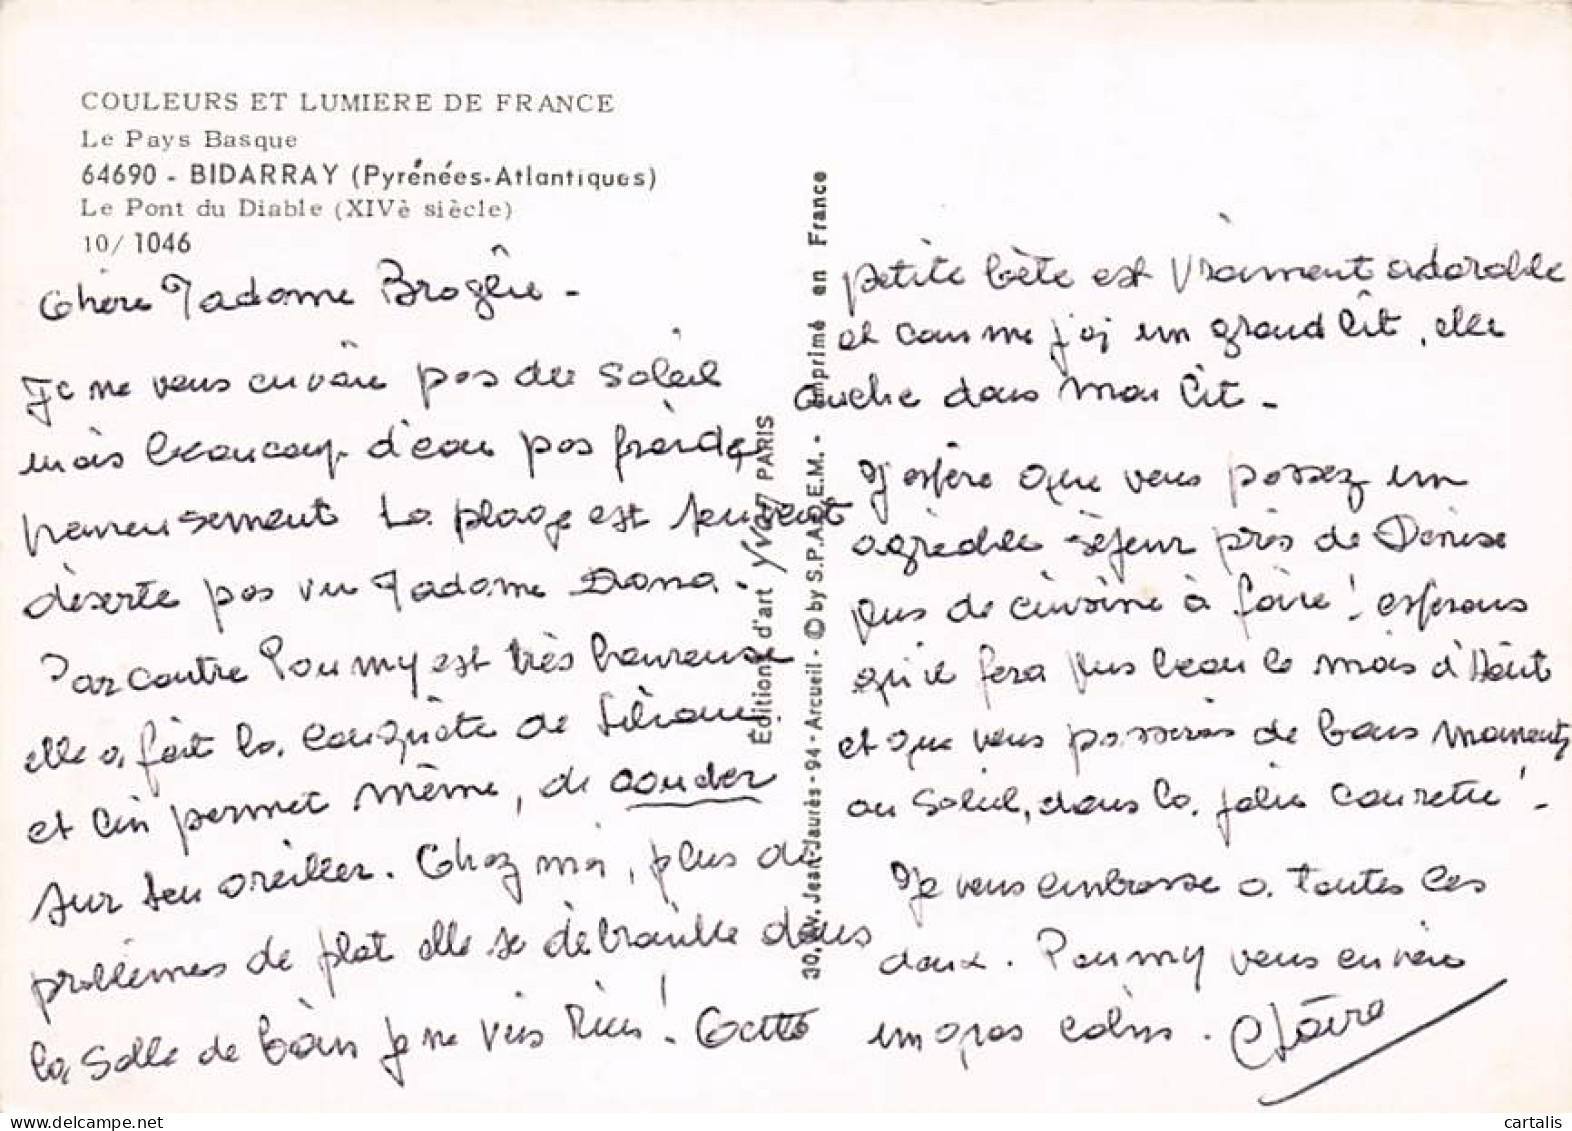 COULEURS ET LUMIERE DE FRANCE
Le Pays Basque
64690 - BIDARRAY (Pyrénées-Atlantiques)
Le Pont du Diable (XIVè siècle)
10/ 1046
Chère Madame
Je ne vous envoie pas du soleil
mais beaucoup d'eau pas froide
heureusement La plage est souvent
déserte pas vu Madame Dona.
Par contre Poumy est très heureuse
elle a fait la conquête de Liliane
et lui permet même, de coucher
sur son oreiller. Chez moi, plus de
problèmes de plat elle se débrouille dans
la salle de bain je ne vois rien! Cette
Éditions d'art Yvon PARIS
30, Av. Jean-Jaurès - 94 - Arcueil - © by S.P.A.D.E.M. - Imprimé en France
petite bête est vraiment adorable
et comme j'ai un grand lit, elle
couche dans mon lit -
J'espère que vous passez un
agréable séjour près de Denise
plus de cuisine à faire! espérons
qu'il fera plus beau le mois d'Août
et que vous passerez de bons moments
au soleil, dans la jolie courette! -
Je vous embrasse a toutes les
deux. Poumy vous envoie
un gros calin. Claire
cartalis